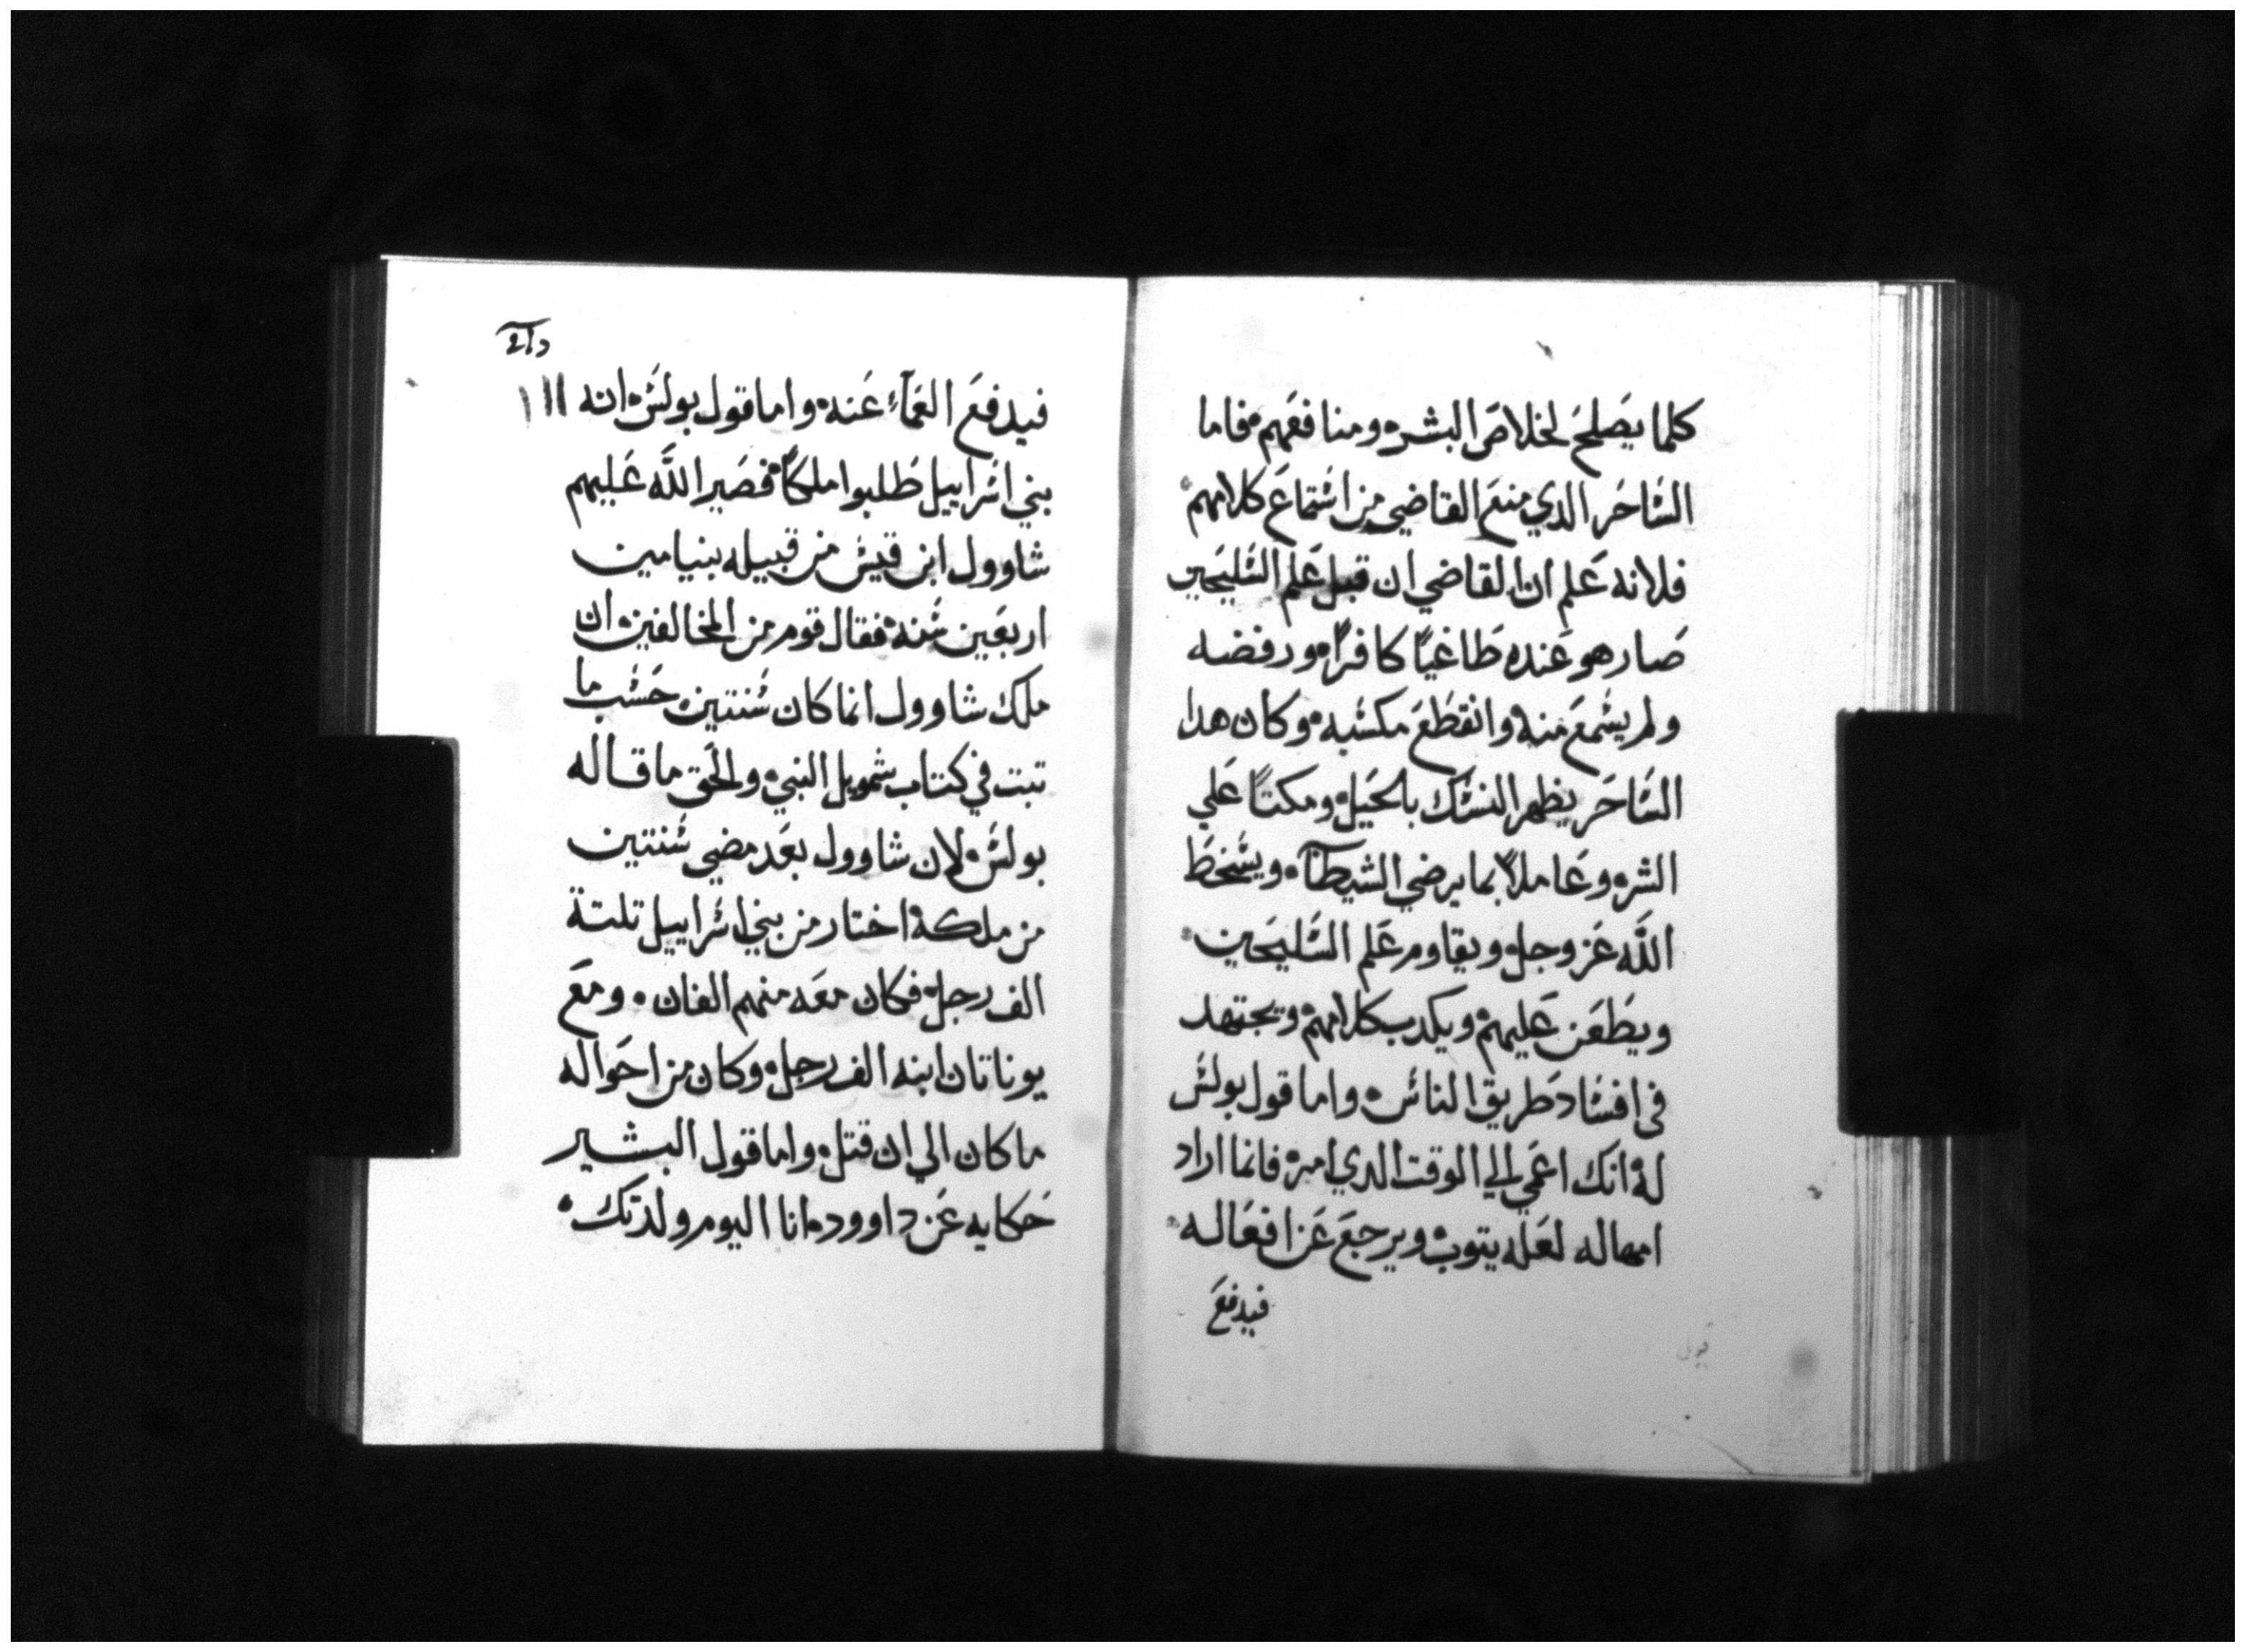 كلما يصلح لخلاص البشر۰ ومنافعهم۰ فاما
الساحر الدي منع القاضي من استماع كلامهم۰
فلانه علم ان القاضي ان قبل علم السليحين
صار هو عنده طاغياً كافراً۰ ورفضه
ولم يسمع منه۰ وانقطع مكسبه۰ وكان هدا
الساحر يظهر النسك بالحيل۰ ومكتاً علي
الشر۰ وعاملاً بما يرضي الشيطان۰ ويسخط
الله عز وجل۰ ويقاوم علم السليحين۰
ويطعن عليهم۰ ويكدب كلامهم۰ ويجتهد
في افساد طريق الناس۰ واما قول بولس
له۰ انك اعمي الي الوقت الدي امره فانما اراد
امهاله لعله يتوب۰ ويرجع عن افعاله۰
فيدفع
فيدفع العماء عنه۰ واما قول بولس۰ انه
بني اسراييل طلبوا ملكاً۰ فصير الله عليهم
شاوول ابن قيس من قبيله بنيامين
اربعين سنه۰ فقال قوم من المخالفين۰ ان
ملك شاوول انما كان سنتين۰ حسب ما
تبت في كتاب شمويل النبي۰ والحق ما قاله
بولس۰ لان شاوول بعد مضي سنتين
من ملكه۰ اختار من بني اسراييل تلتة
الف رجل۰ فكان معه منهم الفان۰ ومع
يوناتان ابنه الف رجل۰ وكان من احواله
ما كان الي ان قتل۰ واما قول البشير
حكايه عن داوود۰ انا اليوم ولدتك۰